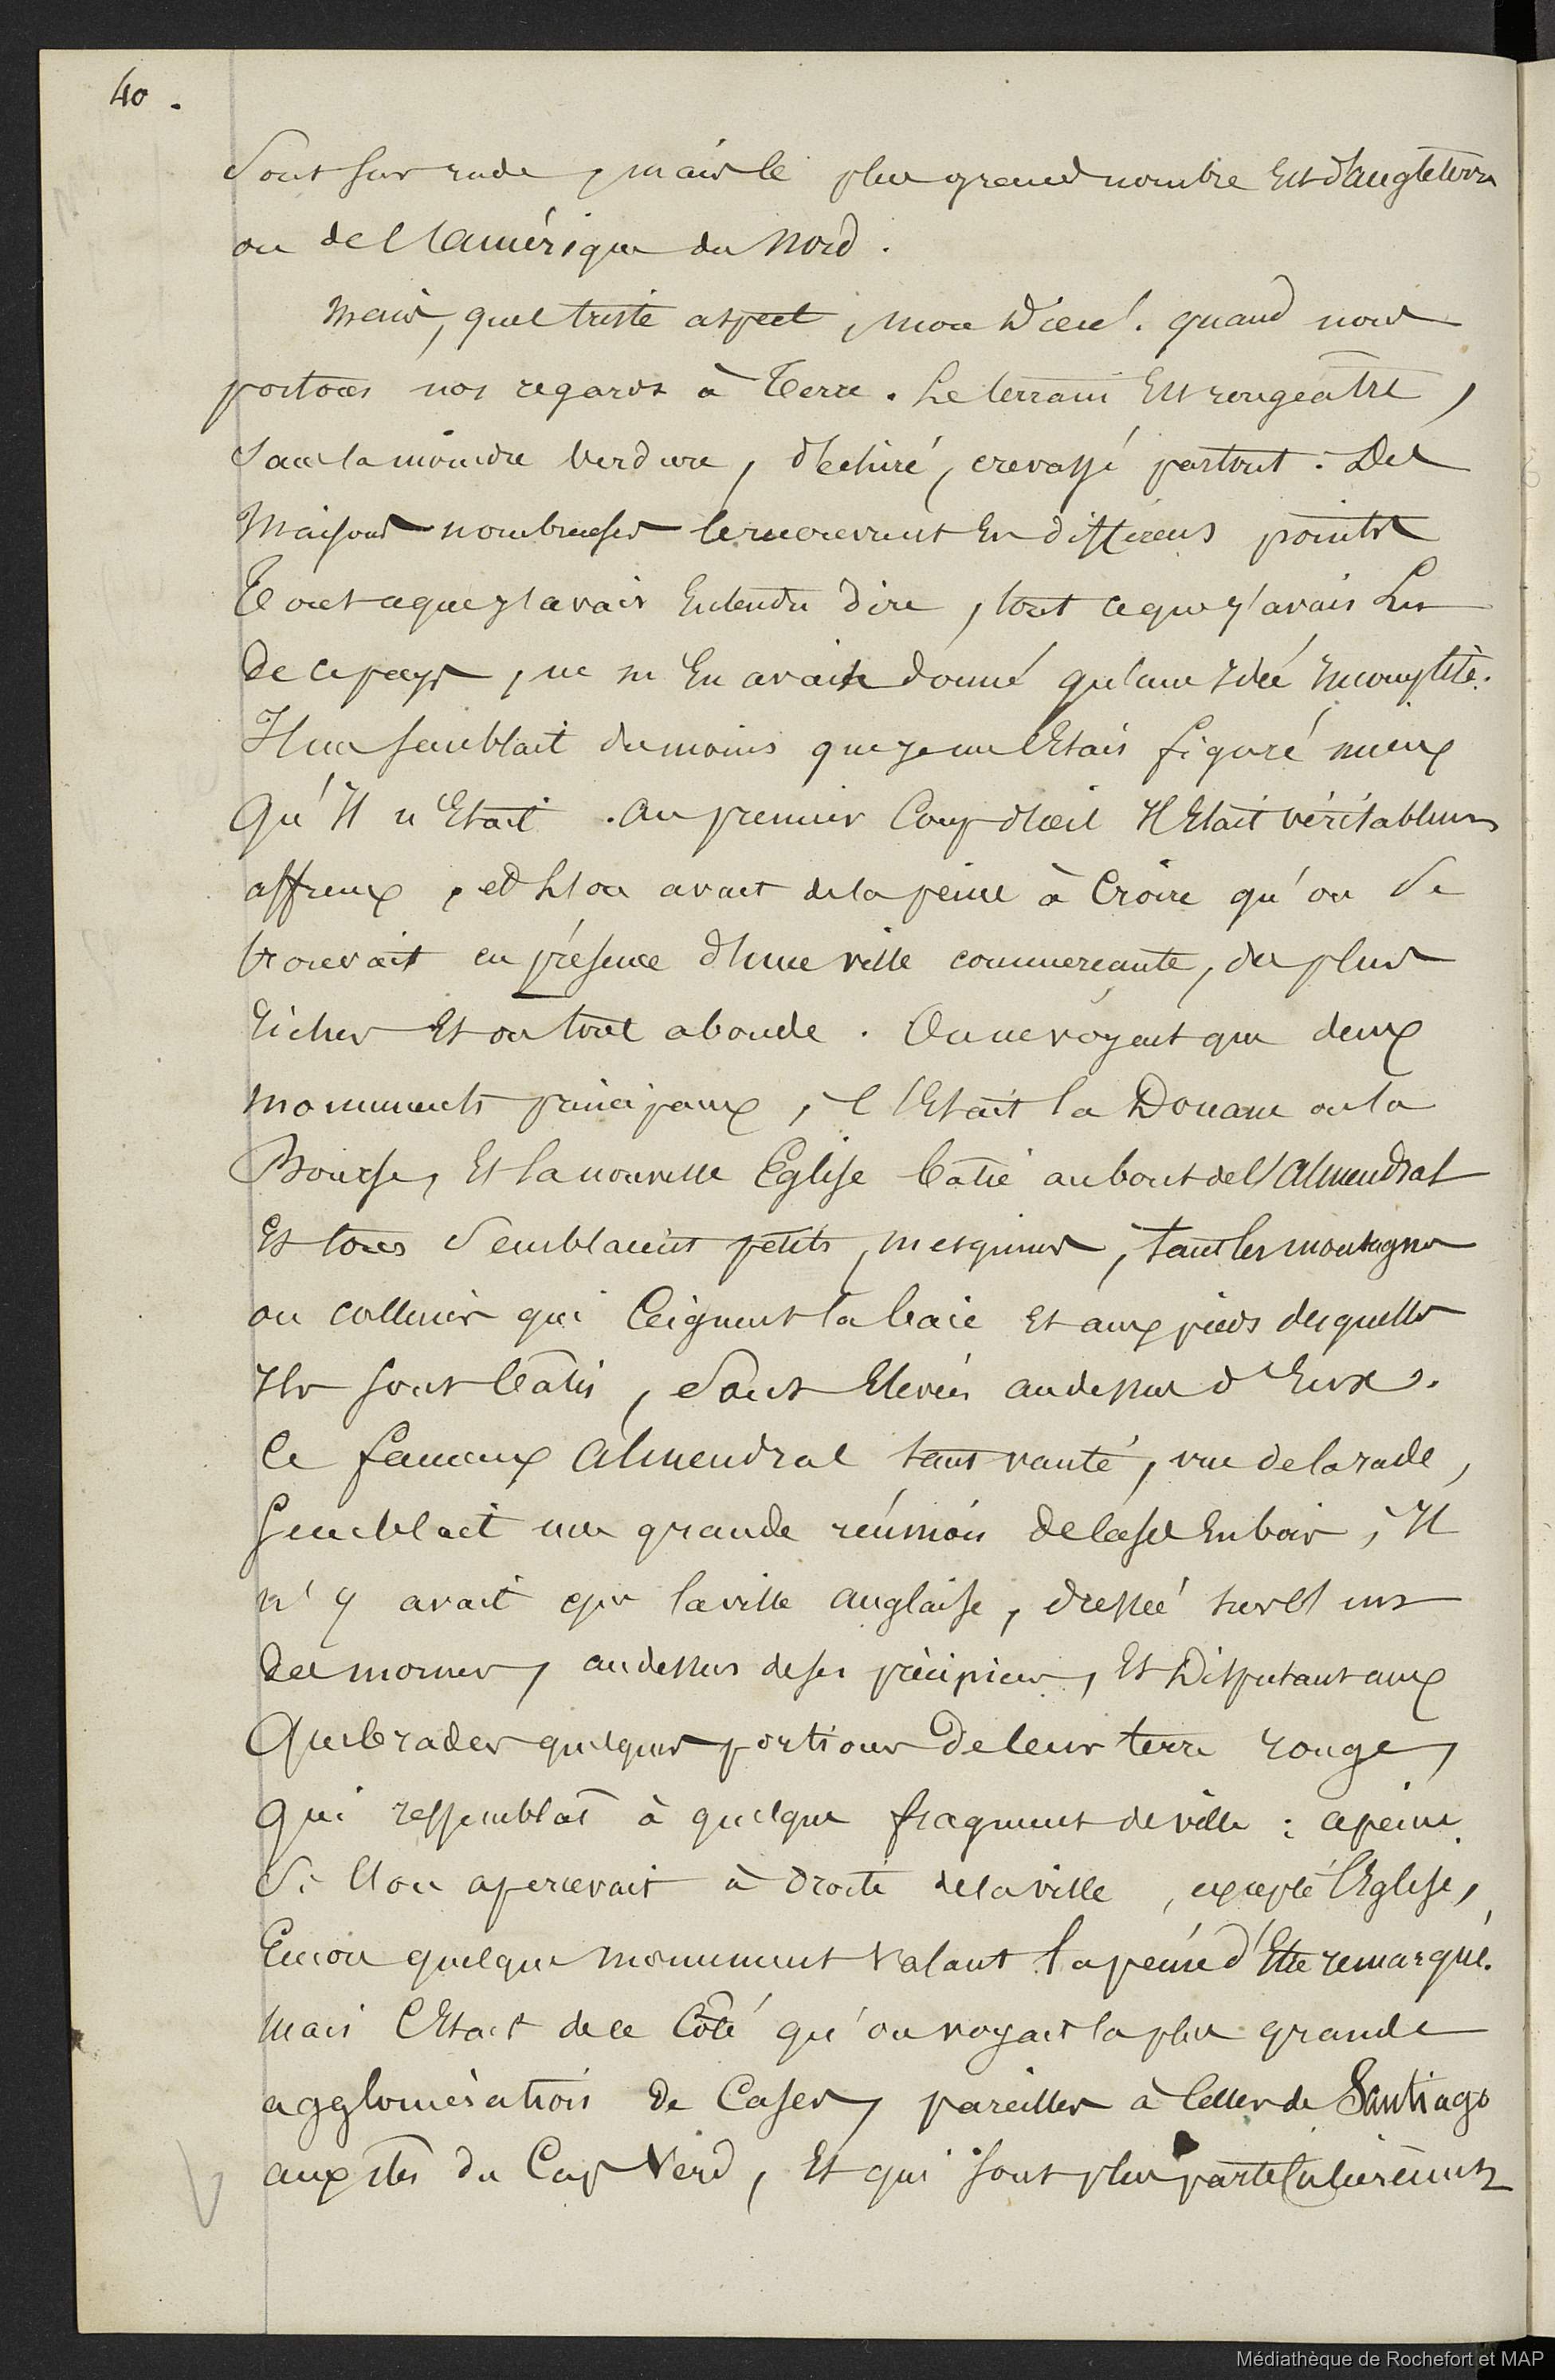 40.
Sont sur rade, mais le plus grand nombre Est d'angleterre
ou de l'amérique du Nord.
Mais, quel triste aspect, mon Dieu! quand nous
portons nos regards à Terre. Le terrain Est rougeâtre,
Sans la moindre Verdure, déchiré, crevassé partout. Des
Maisons nombreuses le recouvrent En différens points
Tout ce que j'avais Entendu dire, tout ce que j'avais Lu
De ce pays, ne m'En avait donné qu'une Idée Incomplète.
Il me semblait du moins que je me l'Etais figuré mieux
Qu'Il n'Etait. Au premier Coup d'œil Il Etait véritablement
affreux, et l'on avait de la peine à Croire qu'on se
trouvait en présence d'une ville commerçante, des plus
Riches Et ou tout abonde. On ne voyait que deux
Monuments principaux, c'Etait la Douane ou la
Bourse, Et la nouvelle Eglise batie au bout de l'Almendral
Et tous Semblaient petits, mesquins, tant les montagnes
ou collines qui Ceignent la baie Et aux pieds desquelles
Ils sont bâtis, Sont Elevées au dessus d'Eux.
Ce fameux Almendral tant vanté, vu de la rade,
Semblait une grande réunion de cases En bois, Il
n'y avait que la ville anglaise, dressée sur l'un
des mornes, au dessus de ses précipices, Et Disputant aux
Quebrades quelques portions de leur terre rouge,
Qui ressemblât à quelque fragment de ville : a peine
Si l'on apercevait à Droite de la ville, excepté l'Eglise,
Encore quelque Monument valant la peine d'Etre remarqué.
Mais C'Etait de ce Côté qu'on voyait la plus grande
agglomération de Cases, pareilles à Celles de Santiago
aux iles du Cap Verd, Et qui sont plus particulièrement
Médiathèque de Rochefort et MAP